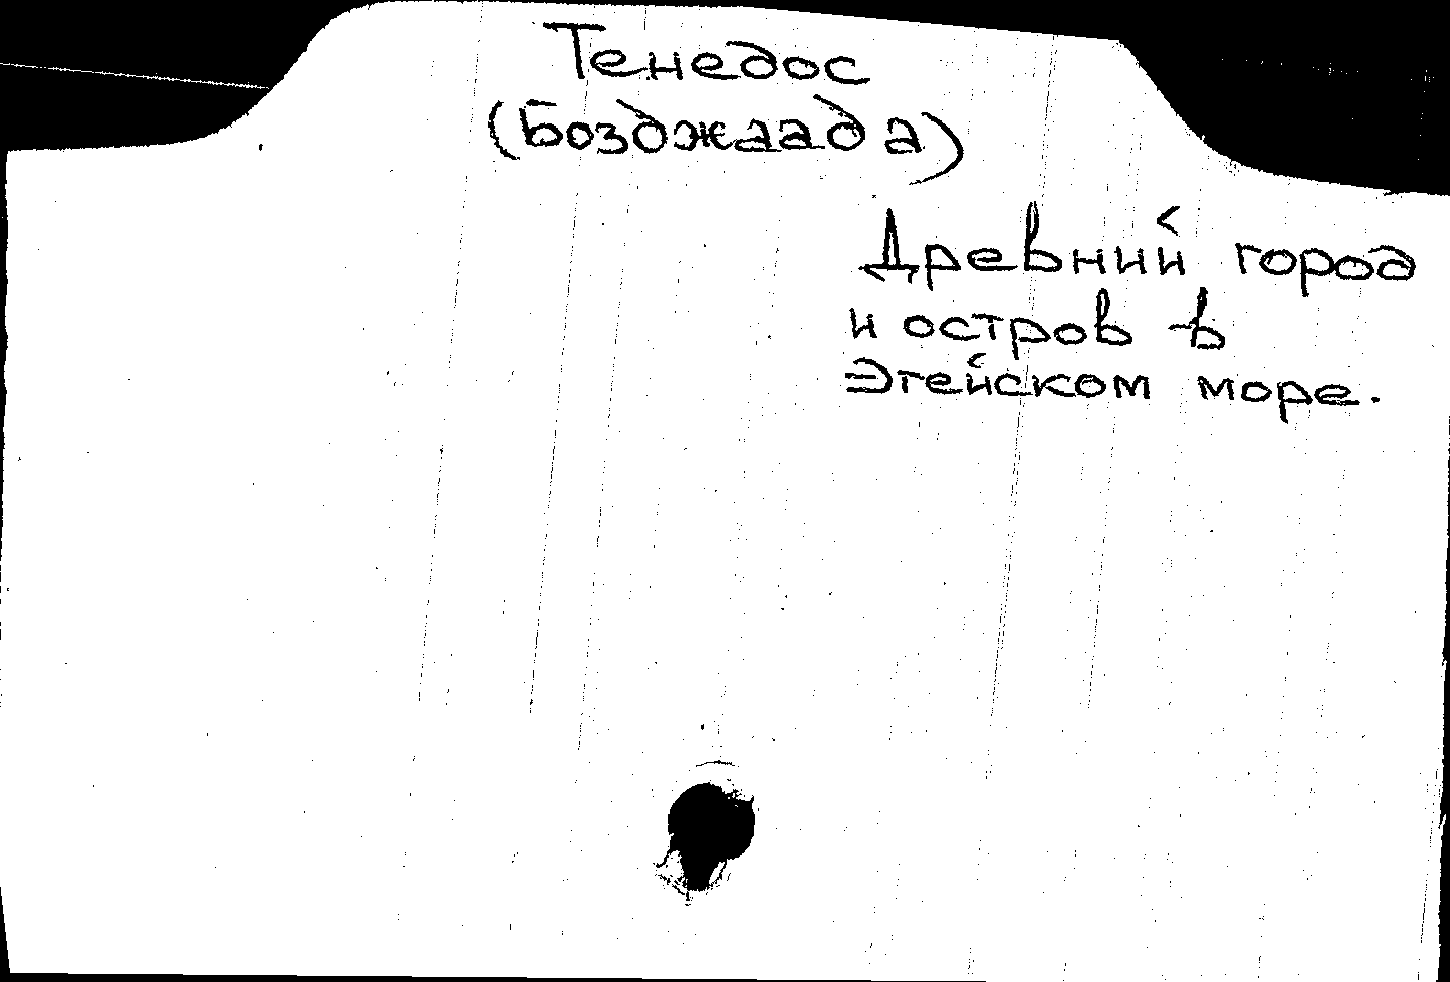 Тенедос
(Бозджаада)
Древний город
и остров в
Эгейском море.